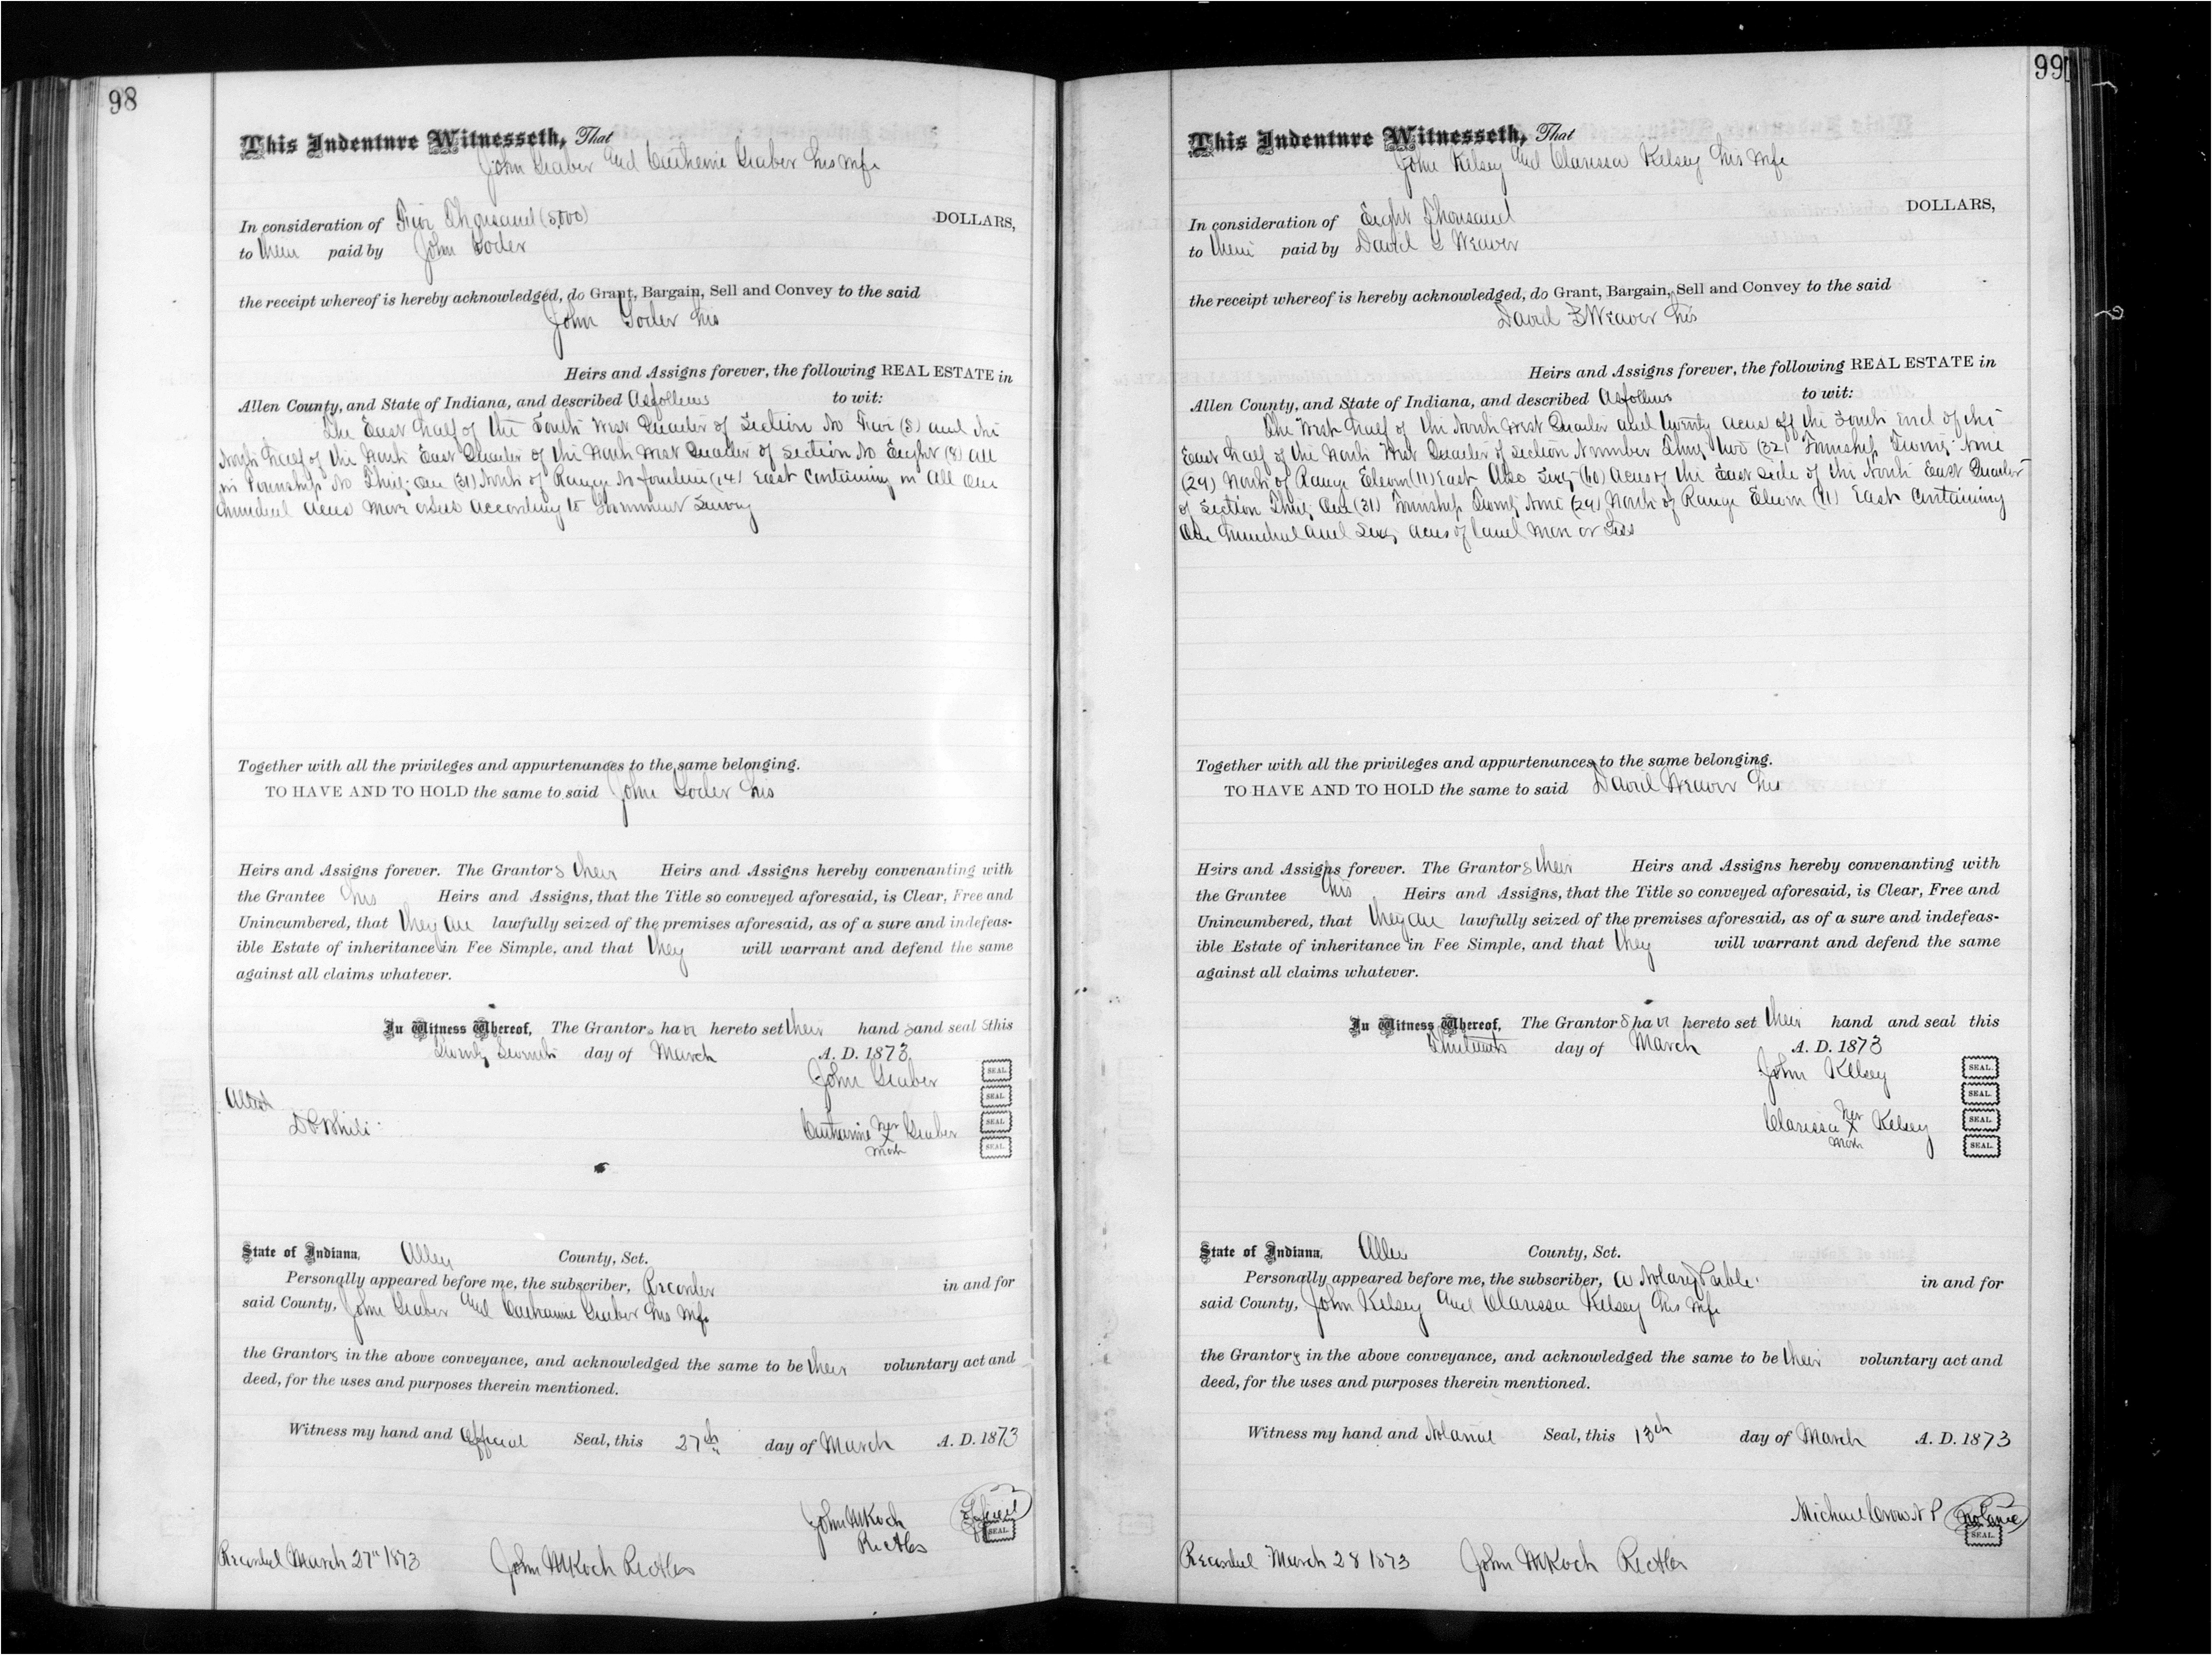 98
This Indenture Witnesseth, That
John Graber and Catherine Graber his wife
In consideration of Five Thousand (5,000) DOLLARS,
to them paid by John Yoder
the receipt whereof is hereby acknowledged, do Grant, Bargain, Sell and Convey to the said
John Yoder his
Heirs and Assigns forever, the following REAL ESTATE in
Allen County, and State of Indiana, and described As follows to wit:
The East half of the South West Quarter of Section No Five (5) and the
North half of the North East Quarter of the North West Quarter of Section No Eight (8) all
in Township No Thirty One (31) North of Range No fourteen (14) East Containing in All One
hundred acres more or less according to Government Survey
Together with all the privileges and appurtenances to the same belonging.
TO HAVE AND TO HOLD the same to said John Yoder his
Heirs and Assigns forever. The Grantors their Heirs and Assigns hereby convenanting with
the Grantee his Heirs and Assigns, that the Title so conveyed aforesaid, is Clear, Free and
Unincumbered, that they are lawfully seized of the premises aforesaid, as of a sure and indefeas-
ible Estate of inheritance in Fee Simple, and that they will warrant and defend the same
against all claims whatever.
In Witness Whereof, The Grantors have hereto set their hands and seals this
Twenty Seventh day of March A. D. 1873
John Graber SEAL.
SEAL.
Attest
Catharine her Graber SEAL.
X
mark SEAL.
State of Indiana, Allen County, Sct.
Personally appeared before me, the subscriber, Recorder in and for
said County, John Graber and Catharine Graber his wife
the Grantors in the above conveyance, and acknowledged the same to be their voluntary act and
deed, for the uses and purposes therein mentioned.
Witness my hand and Official Seal, this 27th day of March A. D. 1873
John M Koch Official
SEAL.
Recorded March 27" 1873 John M Koch
99
This Indenture Witnesseth, That
John Kelsey and Clarissa Kelsey his wife
In consideration of Eight Thousand DOLLARS,
to them paid by David Weaver
the receipt whereof is hereby acknowledged, do Grant, Bargain, Sell and Convey to the said
David Weaver his
Heirs and Assigns forever, the following REAL ESTATE in
Allen County, and State of Indiana, and described As follows to wit:
The West half of the North West Quarter and twenty acres off the South end of the
East half of the North West Quarter of Section Number Thirty two (32) Township Twenty Nine
(29) North of Range Eleven (11) East Also Sixty (60) acres of the East side of the North East Quarter
of Section Thirty One (31) Township Twenty Nine (29) North of Range Eleven (11) East Containing
One hundred and Sixty acres of land more or less
Together with all the privileges and appurtenances to the same belonging.
TO HAVE AND TO HOLD the same to said David Weaver his
Heirs and Assigns forever. The Grantors their Heirs and Assigns hereby convenanting with
the Grantee his Heirs and Assigns, that the Title so conveyed aforesaid, is Clear, Free and
Unincumbered, that they are lawfully seized of the premises aforesaid, as of a sure and indefeas-
ible Estate of inheritance in Fee Simple, and that they will warrant and defend the same
against all claims whatever.
In Witness Whereof, The Grantors have hereto set their hand and seal this
Thirteenth day of March A. D. 1873
John Kelsey SEAL.
SEAL.
Clarissa her Kelsey SEAL.
X
mark SEAL.
State of Indiana, Allen County, Sct.
Personally appeared before me, the subscriber, a Notary Public in and for
said County, John Kelsey and Clarissa Kelsey his wife
the Grantors in the above conveyance, and acknowledged the same to be their voluntary act and
deed, for the uses and purposes therein mentioned.
Witness my hand and Notarial Seal, this 13th day of March A. D. 1873
Michael Crow N P Notarial
SEAL.
Recorded March 28 1873 John M Koch